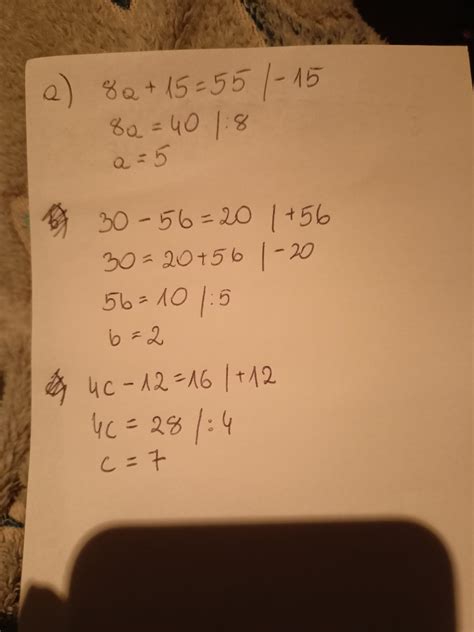 a) 8a + 15 = 55 | -15
8a = 40 | :8
a = 5
30 - 5b = 20 | +5b
30 = 20 + 5b | -20
5b = 10 | :5
b = 2
4c - 12 = 16 | +12
4c = 28 | :4
c = 7